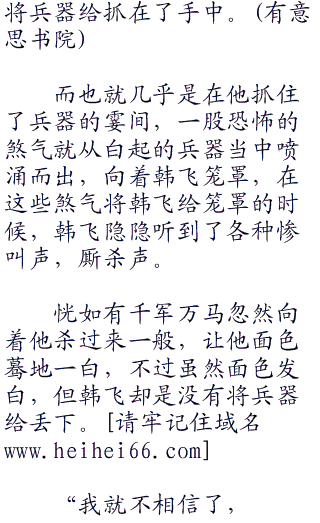 将兵器给抓在了手中。(有意
思书院)
而也就几乎是在他抓住
了兵器的霎间，一股恐怖的
煞气就从白起的兵器当中喷
涌而出，向着韩飞笼罩，在
这些煞气将韩飞给笼罩的时
候，韩飞隐隐听到了各种惨
叫声，厮杀声。
恍如有千军万马忽然向
着他杀过来一般，让他面色
蓦地一白，不过虽然面色发
白，但韩飞却是没有将兵器
给丢下。[请牢记住域名
www.heihei66.com]
“我就不相信了，